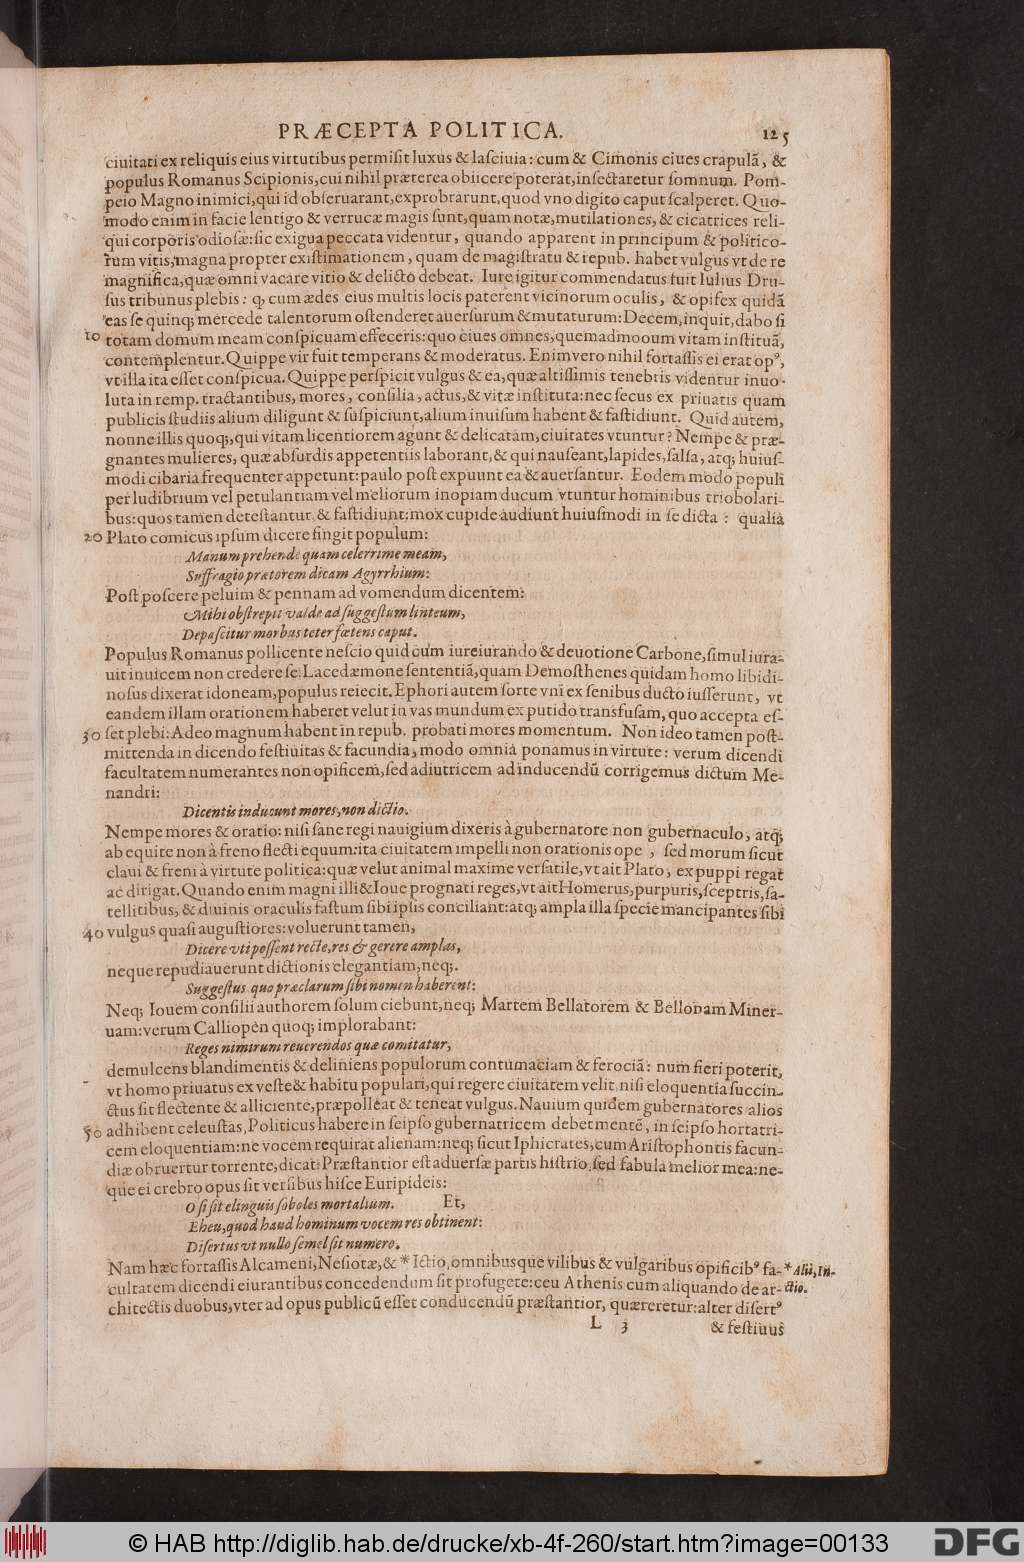 PRÆCEPTA POLITICA. 125
ciuitati ex reliquis eius virtutibus permiſit luxus & laſciuia: cum & Cimonis ciues crapulã, &
populus Romanus Scipionis, cui nihil præterea obiicere poterat, inſectaretur ſomnum. Pom-
peio Magno inimici, qui id obſeruarant, exprobrarunt, quod vno digito caput ſcalperet. Quo-
modo enim in facie lentigo & verrucæ magis ſunt, quam notæ, mutilationes, & cicatrices reli-
qui corporis odioſæ: ſic exigua peccata videntur, quando apparent in principum & politico-
rum vitis, magna propter exiſtimationem, quam de magiſtratu & repub. habet vulgus vt de re
magnifica, quæ omni vacare vitio & delicto debeat. Iure igitur commendatus fuit Iulius Dru-
ſus tribunus plebis: q, cum ædes eius multis locis paterent vicinorum oculis, & opifex quidã
eas ſe quinq; mercede talentorum oſtenderet auerſurum & mutaturum: Decem, inquit, dabo ſi
10 totam domum meam conſpicuam effeceris: quo ciues omnes, quemadmooum vitam inſtituã,
contemplentur. Quippe vir fuit temperans & moderatus. Enimvero nihil fortaſſis ei erat opꝰ,
vt illa ita eſſet conſpicua. Quippe perſpicit vulgus & ea, quæ altiſſimis tenebris videntur inuo-
luta in remp. tractantibus, mores, conſilia, actus, & vitæ inſtituta: nec ſecus ex priuatis quam
publicis ſtudiis alium diligunt & ſuſpiciunt, alium inuiſum habent & faſtidiunt. Quid autem,
nonne illis quoq;, qui vitam licentiorem agunt & delicatam, ciuitates vtuntur? Nempe & præ-
gnantes mulieres, quæ abſurdis appetentiis laborant, & qui nauſeant, lapides, ſalſa, atq; huiuſ-
modi cibaria frequenter appetunt: paulo poſt expuunt ea & auerſantur. Eodem modo populi
per ludibrium vel petulantiam vel meliorum inopiam ducum vtuntur hominibus triobolari-
bus: quos tamen deteſtantur & faſtidiunt: mox cupide audiunt huiuſmodi in ſe dicta: qualia
20 Plato comicus ipſum dicere fingit populum:
Manum prehende quam celerrime meam,
Suffragio prætorem dicam Agyrrhium:
Poſt poſcere peluim & pennam ad vomendum dicentem:
Mihi obſtrepit valde ad ſuggeſtum linteum,
Depaſcitur morbus teter fœtens caput.
Populus Romanus pollicente neſcio quid cum iureiurando & deuotione Carbone, ſimul iura-
uit inuicem non credere ſe: Lacedæmone ſententiã, quam Demoſthenes quidam homo libidi-
noſus dixerat idoneam, populus reiecit. Ephori autem ſorte vni ex ſenibus ducto iuſſerunt, vt
eandem illam orationem haberet velut in vas mundum ex putido transfuſam, quo accepta eſ-
30 ſet plebi: Adeo magnum habent in repub. probati mores momentum. Non ideo tamen poſt-
mittenda in dicendo feſtiuitas & facundia, modo omnia ponamus in virtute: verum dicendi
facultatem numerantes non opificem, ſed adiutricem ad inducendũ corrigemus dictum Me-
nandri:
Dicentis inducunt mores, non dictio.
Nempe mores & oratio: niſi ſane regi nauigium dixeris à gubernatore non gubernaculo, atq;
ab equite non à freno flecti equum: ita ciuitatem impelli non orationis ope, ſed morum ſicut
claui & freni à virtute politica: quæ velut animal maxime verſatile, vt ait Plato, ex puppi regat
ac dirigat. Quando enim magni illi & Ioue prognati reges, vt ait Homerus, purpuris, ſceptris, ſa-
tellitibus, & diuinis oraculis faſtum ſibi ipſis conciliant: atq; ampla illa ſpecie mancipantes ſibi
40 vulgus quaſi auguſtiores: voluerunt tamen,
Dicere vti poſſent recte, res & gerere amplas,
neque repudiauerunt dictionis elegantiam, neq;.
Suggeſtus quo præclarum ſibi nomen haberent:
Neq; Iouem conſilii authorem ſolum ciebunt, neq; Martem Bellatorem & Bellonam Miner-
uam: verum Calliopen quoq; implorabant:
Reges nimirum reuerendos quæ comitatur,
demulcens blandimentis & deliniens populorum contumaciam & ferociã: num fieri poterit,
vt homo priuatus ex veſte & habitu populari, qui regere ciuitatem velit, niſi eloquentia ſuccin-
ctus ſit flectente & alliciente, præpolleat & teneat vulgus. Nauium quidem gubernatores alios
50 adhibent celeuſtas, Politicus habere in ſeipſo gubernatricem debet mentẽ, in ſeipſo hortatri-
cem eloquentiam: ne vocem requirat alienam: neq; ſicut Iphicrates, cum Ariſtophontis facun-
diæ obruertur torrente, dicat: Præſtantior eſt aduerſæ partis hiſtrio, ſed fabula melior mea: ne-
que ei crebro opus ſit verſibus hiſce Euripideis:
O ſi ſit elinguis ſoboles mortalium. Et,
Eheu, quod haud hominum vocem res obtinent:
Diſertus vt nullo ſemel ſit numero.
Nam hæc fortaſſis Alcameni, Neſiotæ, & * Ictio, omnibusque vilibus & vulgaribus opificibꝰ fa- * Alii, In-
cultatem dicendi eiurantibus concedendum ſit profugere: ceu Athenis cum aliquando de ar- ctio.
chitectis duobus, vter ad opus publicũ eſſet conducendũ præſtantior, quæreretur: alter diſertꝰ
L 3 & feſtiuus
© HAB http://diglib.hab.de/drucke/xb-4f-260/start.htm?image=00133 DFG